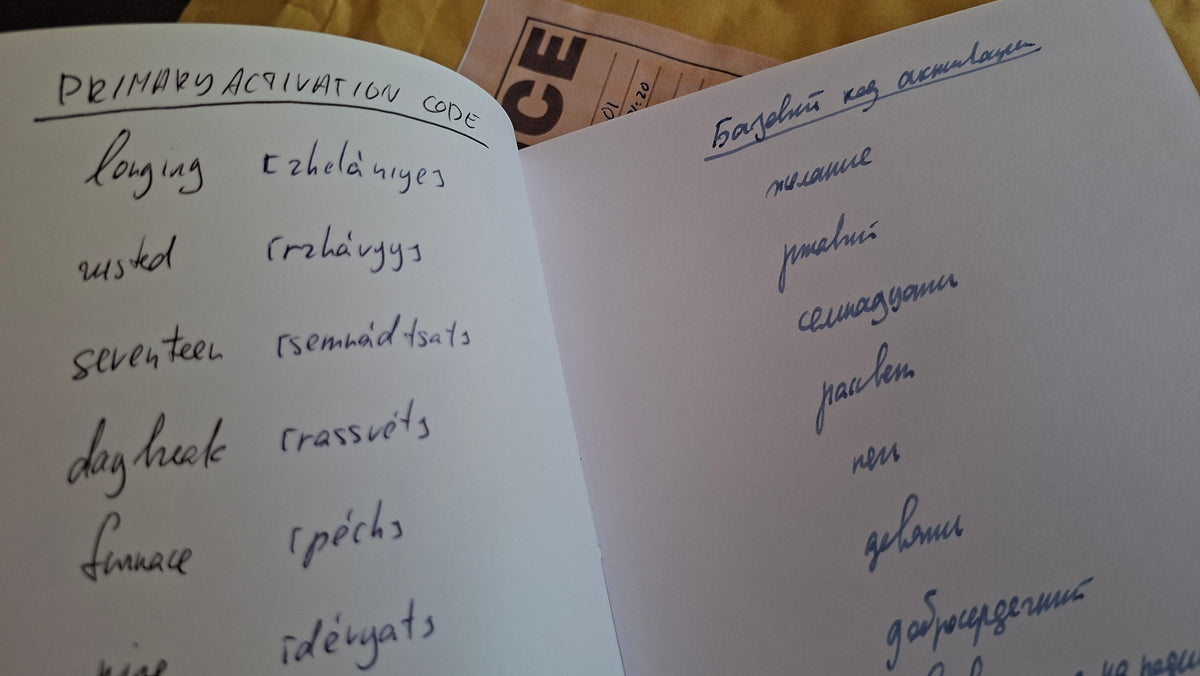 PRIMARY ACTIVATION CODE
longing [zhelániye]
rusted [rzhávyy]
seventeen [semnádtsat]
daybreak [rassvét]
furnace [péch]
nine [dévyat]
CE
01
Базовый код активации
желание
ржавый
семнадцать
рассвет
печь
девять
добросердечный
на родину